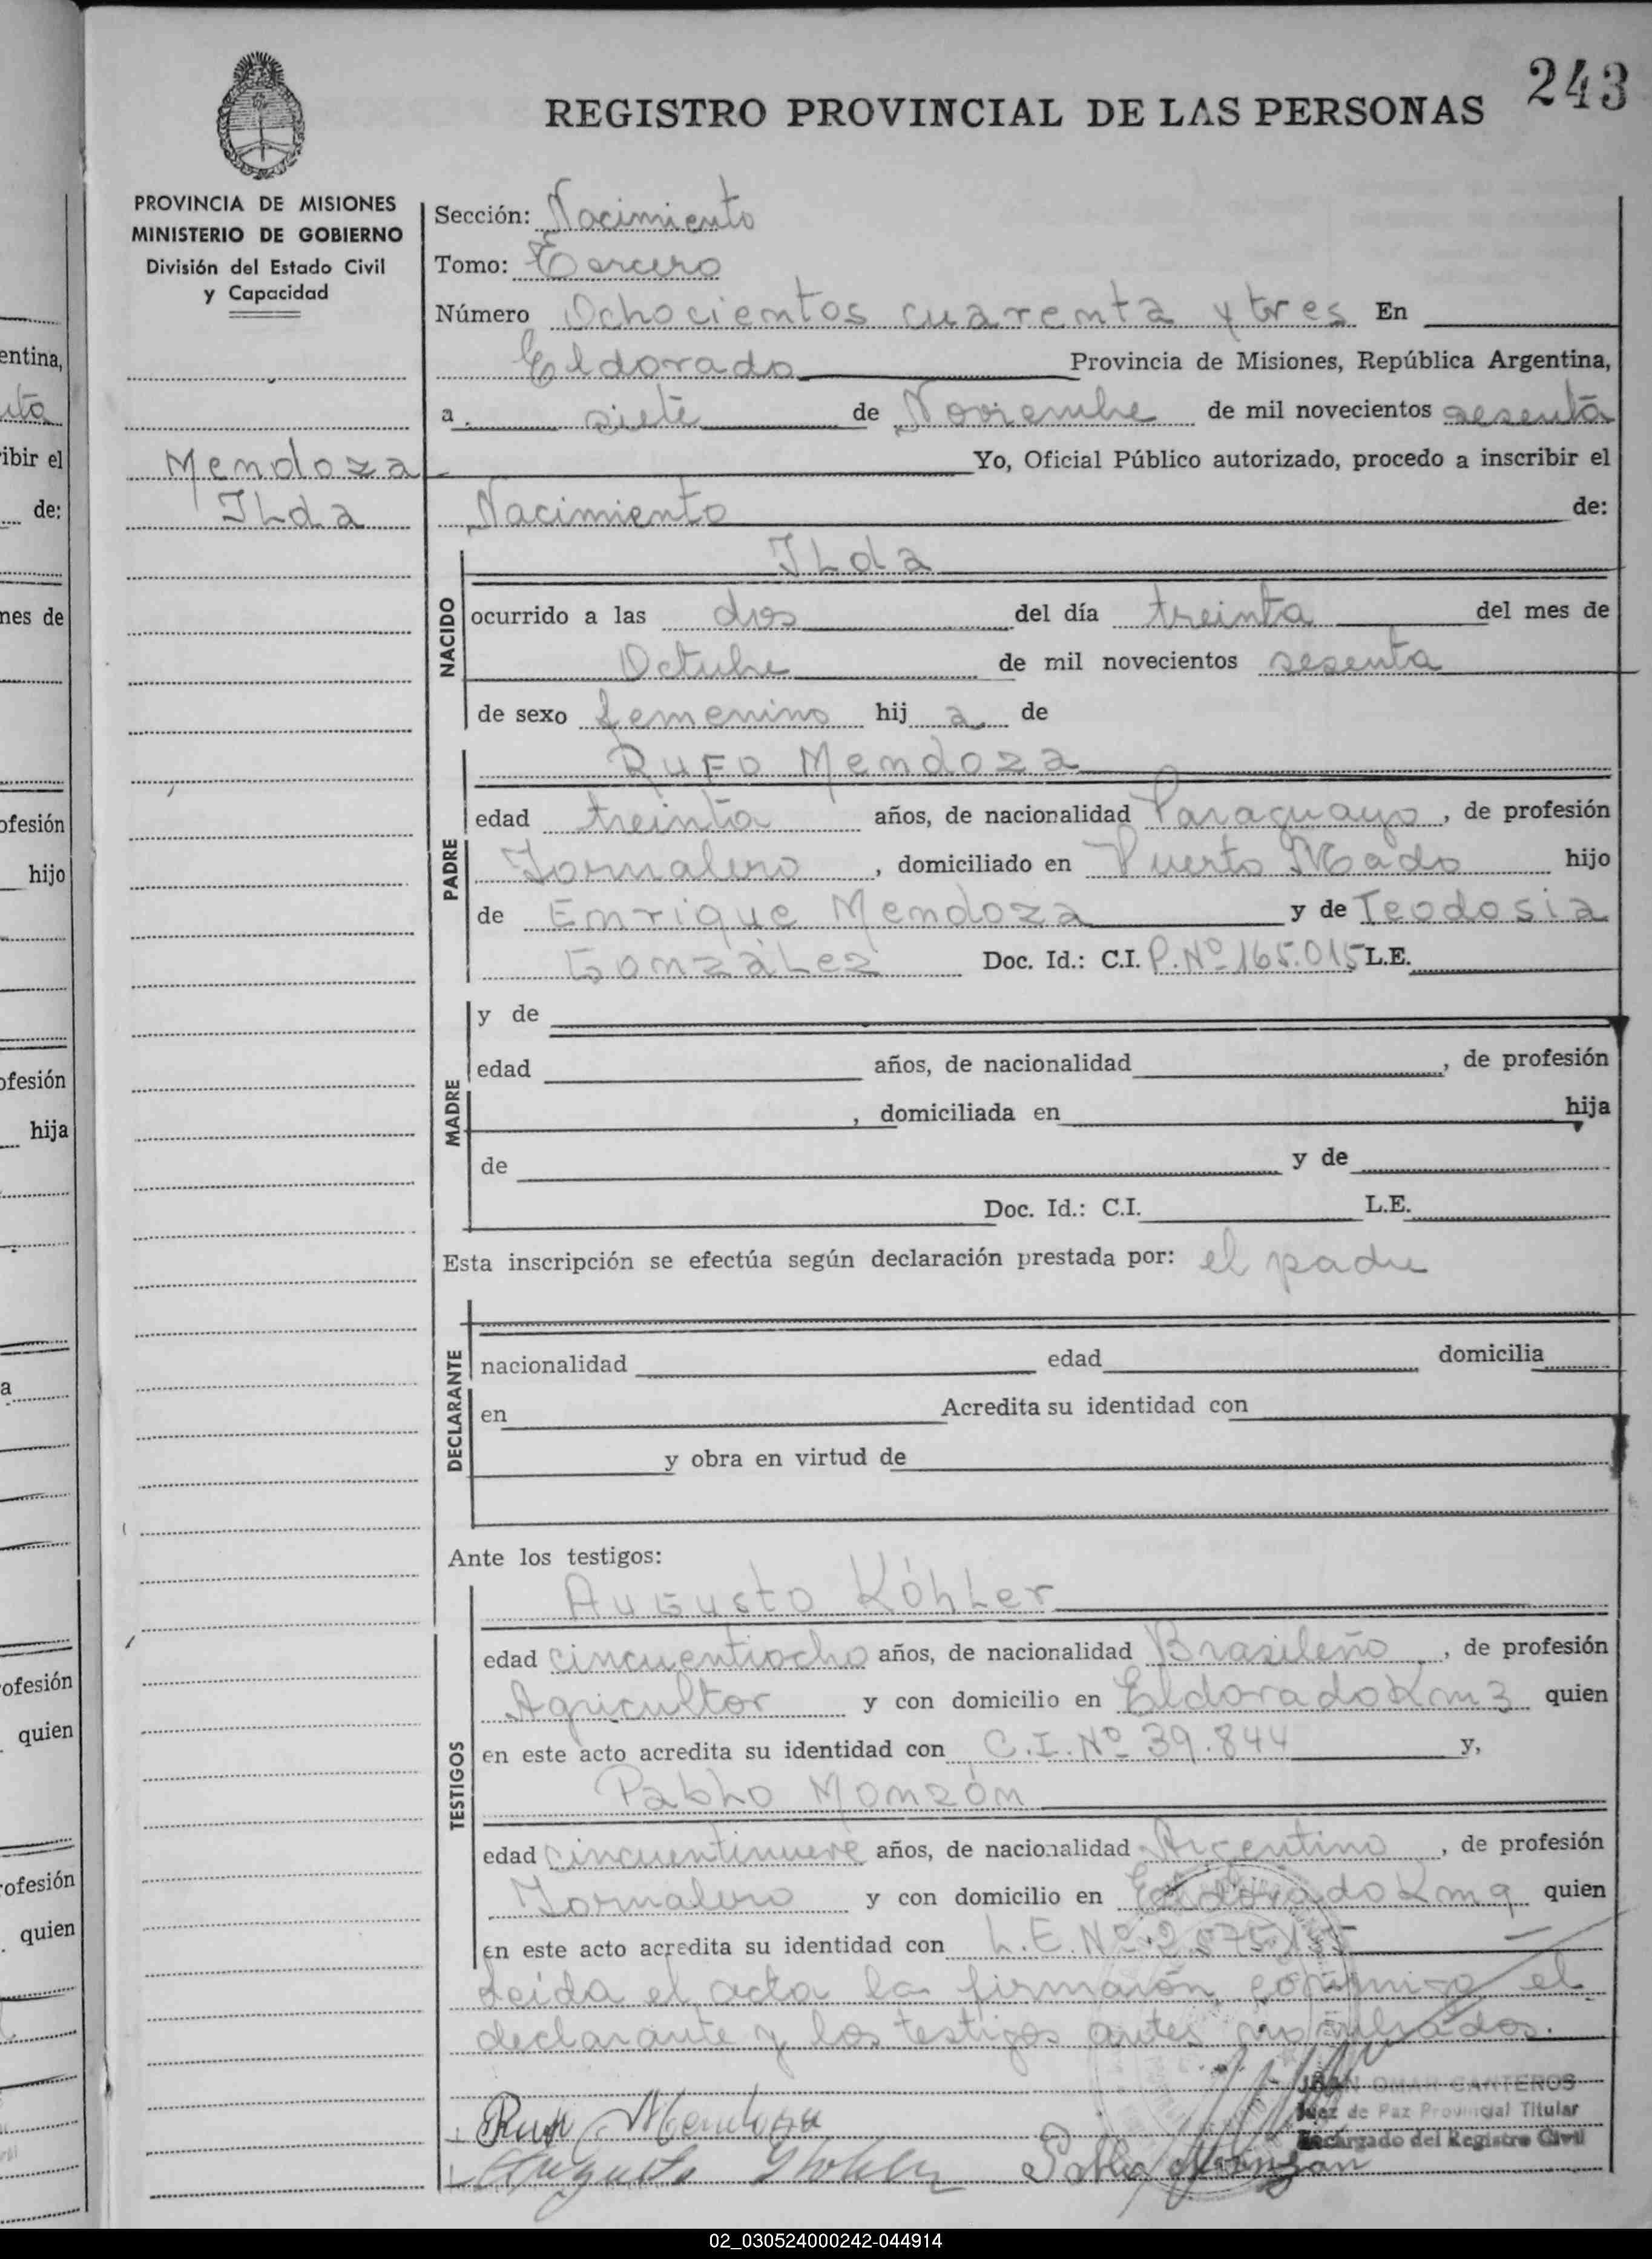 243
REGISTRO PROVINCIAL DE LAS PERSONAS
PROVINCIA DE MISIONES
MINISTERIO DE GOBIERNO
División del Estado Civil
y Capacidad
Mendoza
ILda
Sección: Nacimiento
Tomo: Tercero
Número Ochocientos cuarenta y tres En
Eldorado Provincia de Misiones, República Argentina,
a siete de Noviembre de mil novecientos sesenta
Yo, Oficial Público autorizado, procedo a inscribir el
Nacimiento de:
NACIDO
ILda
ocurrido a las dos del día treinta del mes de
Octubre de mil novecientos sesenta
de sexo femenino hij a de
PADRE
Rufo Mendoza
edad treinta años, de nacionalidad Paraguayo, de profesión
Jornalero, domiciliado en Puerto Mado hijo
de Enrique Mendoza y de Teodosia
González Doc. Id.: C.I. P.Nº 165.015 L.E.
MADRE
y de
edad años, de nacionalidad , de profesión
, domiciliada en hija
de y de
Doc. Id.: C.I. L.E.
Esta inscripción se efectúa según declaración prestada por: el padre
DECLARANTE
nacionalidad edad domicilia
en Acredita su identidad con
y obra en virtud de
Ante los testigos:
TESTIGOS
Augusto Köhler
edad cincuentiocho años, de nacionalidad Brasileño, de profesión
Agricultor y con domicilio en Eldorado Km 3 quien
en este acto acredita su identidad con C.I. Nº 39.844 y,
Pablo Monzón
edad cincuentinueve años, de nacionalidad Argentino, de profesión
Jornalero y con domicilio en Eldorado Km 9 quien
en este acto acredita su identidad con L.E. Nº
Leida el acta la firmarón conmigo el
declarante y los testigos antes nombrados.
JUAN OMAR CANTEROS
Juez de Paz Provincial Titular
Encargado del Registro Civil
Rufo Mendoza
Augusto Köhler Pablo Monzon
02_030524000242-044914